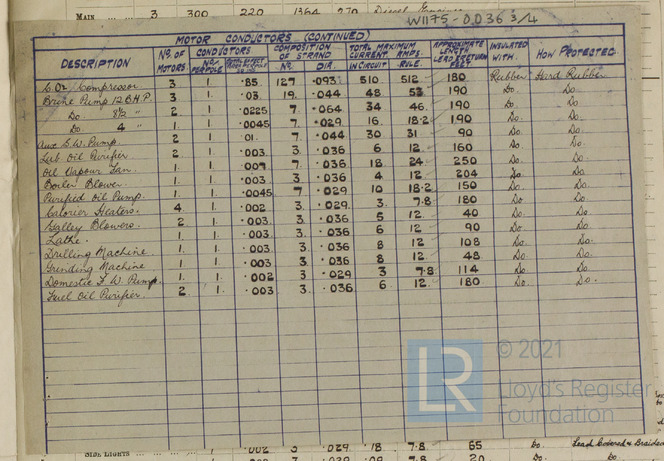 MAIN ... 3 300 220 1364 270 Diesel Engine
W1175-0036 3/4
MOTOR CONDUCTORS (CONTINUED)
DESCRIPTION No. OF MOTORS. CONDUCTORS No. PER POLE COMPOSITION OF STRAND No. DIA. TOTAL MAXIMUM CURRENT AMPS. IN CIRCUIT RULE. APPROXIMATE LENGTH LEAD & RETURN FEET INSULATED WITH. HOW PROTECTED.
C.O2 Compressor 3 1. .85 127 .093 510 512 180 Rubber Hard Rubber
Brine Pump 12 B.H.P. 3 1. .03 19. .044 48 53 190 Do. Do.
Do 8½ " 2 1. .0225 7 .064 34 46 190 Do. Do.
Do 4 " 1. 1. .0045 7 .029 16 18.2 190 Do. Do.
Aux S.W. Pump. 2 1. .01. 7 .044 30 31 90 Do. Do.
Lub Oil Purifier 2 1. .003 3 .036 6 12 160 Do. Do.
Oil Vapour Fan. 1. 1. .007 7. .036 18 24 250 Do. Do.
Boiler Blower 1. 1. .003 3 .036 4 12 204 Do. Do.
Purified Oil Pump. 1. 1. .0045 7 .029 10 18.2 150 Do. Do.
Calorier Heaters. 4. 1. .002 3 .029 3 7.8 180 Do. Do.
Galley Blowers 2 1. .003 3 .036 5 12 40 Do. Do.
Lathe. 1. 1. .003 3 .036 6 12 90 Do. Do.
Drilling Machine. 1. 1. .003 3 .036 8 12 108 Do. Do.
Grinding Machine 1. 1. .003 3 .036 8 12 48 Do. Do.
Domestic F.W. Pump. 1. 1. .002 3 .029 3 7.8 114 Do. Do.
Fuel Oil Purifier. 2 1. .003 3. .036 6 12. 180 Do. Do.
LR © 2021
Lloyd's Register
Foundation
SIDE LIGHTS 1 .002 3 .029 .18 7.8 65 Do. Lead Covered & Braided
.029 7.8 20 Do. Do.